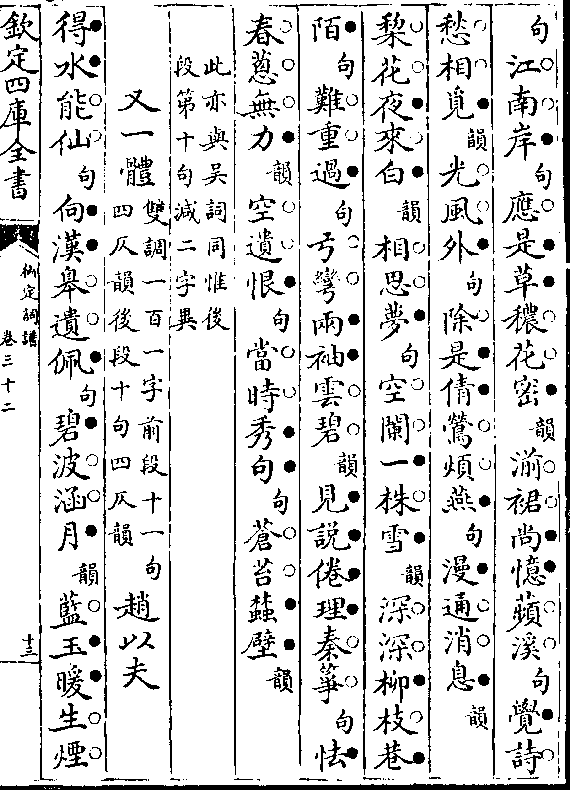 句江南岸句應是草穠花密韻湔裙尚憶蘋溪句覺詩
愁相覓韻光風外句除是倩鶯煩燕句漫通消息韻
梨花夜來白韻相思夢句空闌一株雪韻深深柳枝巷
陌句難重過句弓彎兩袖雲碧韻見說倦理秦箏句怯
春蔥無力韻空遺恨句當時秀句句蒼苔蠹壁韻
此亦與吳詞同惟後
段第十句減二字異
又一體雙調一百一字前段十一句
四仄韻後段十句四仄韻趙以夫
得水能仙句向漢皋遺佩句碧波涵月韻藍玉暖生煙
欽定四庫全書
御定詞譜
卷三十二
十三